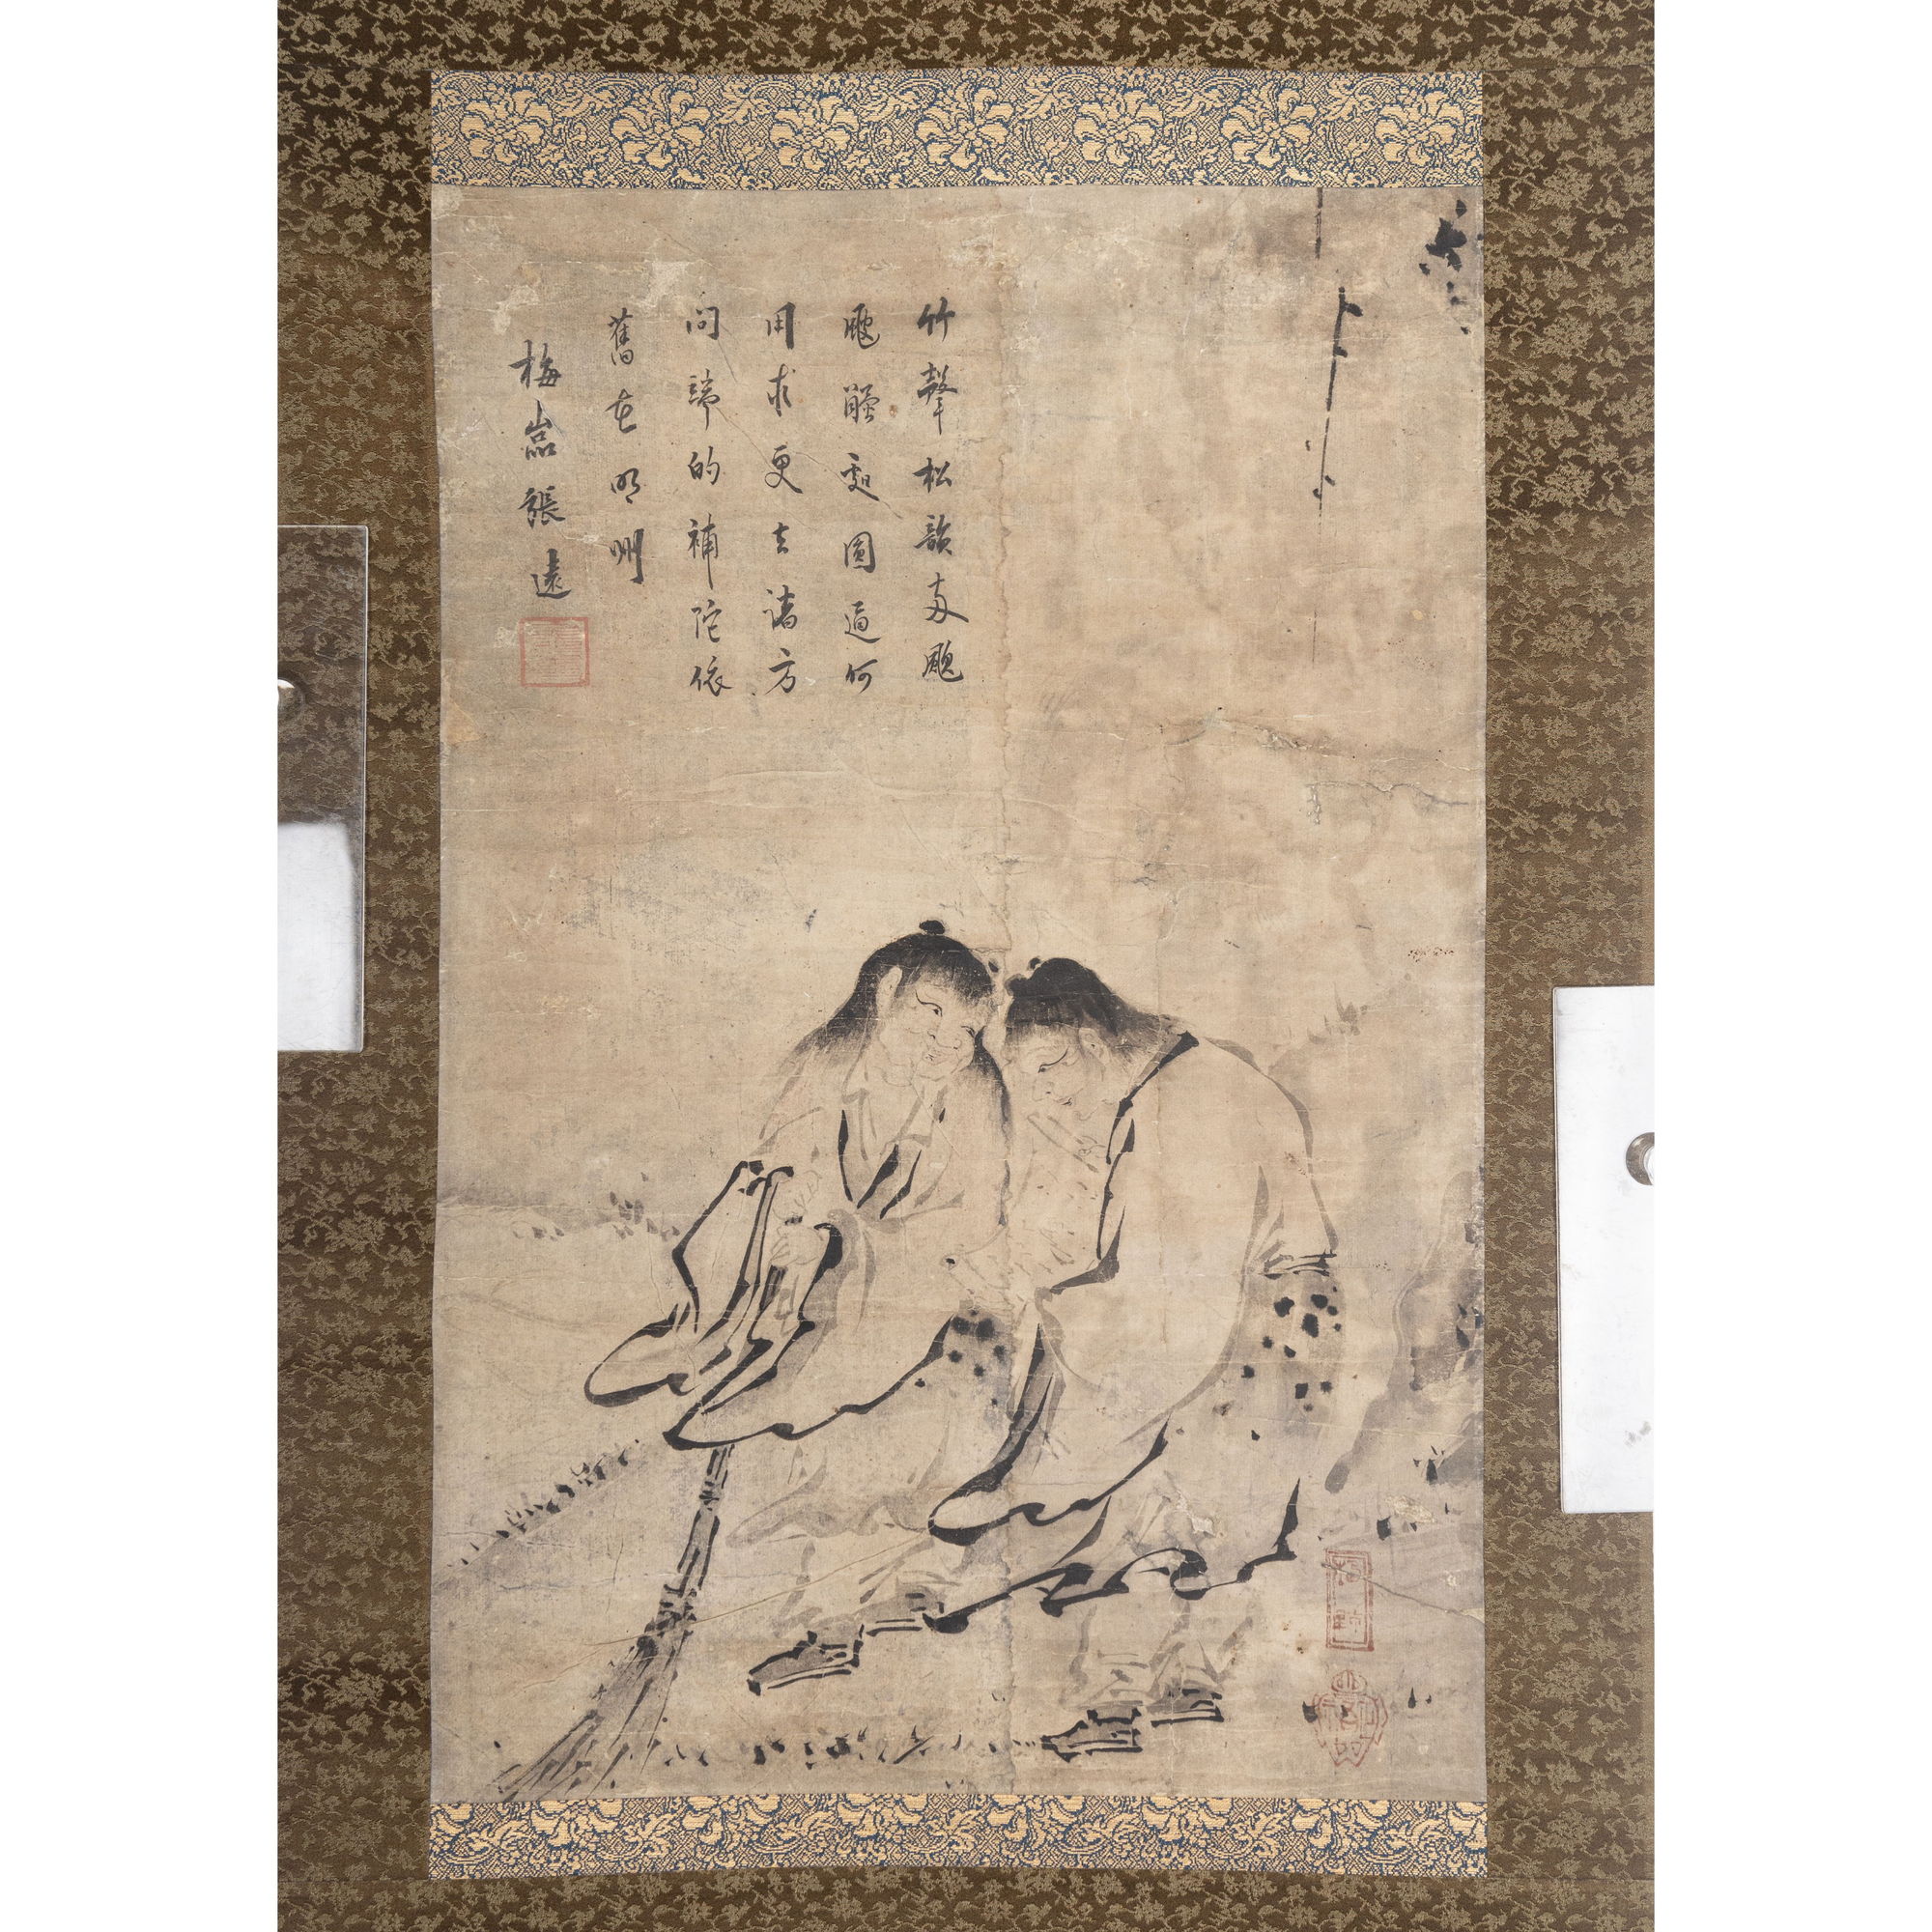 竹聲松韻兩颼
飀觸處圓通何
用求更去諸方
問端的補陀依
舊在明州
梅嵓張遠